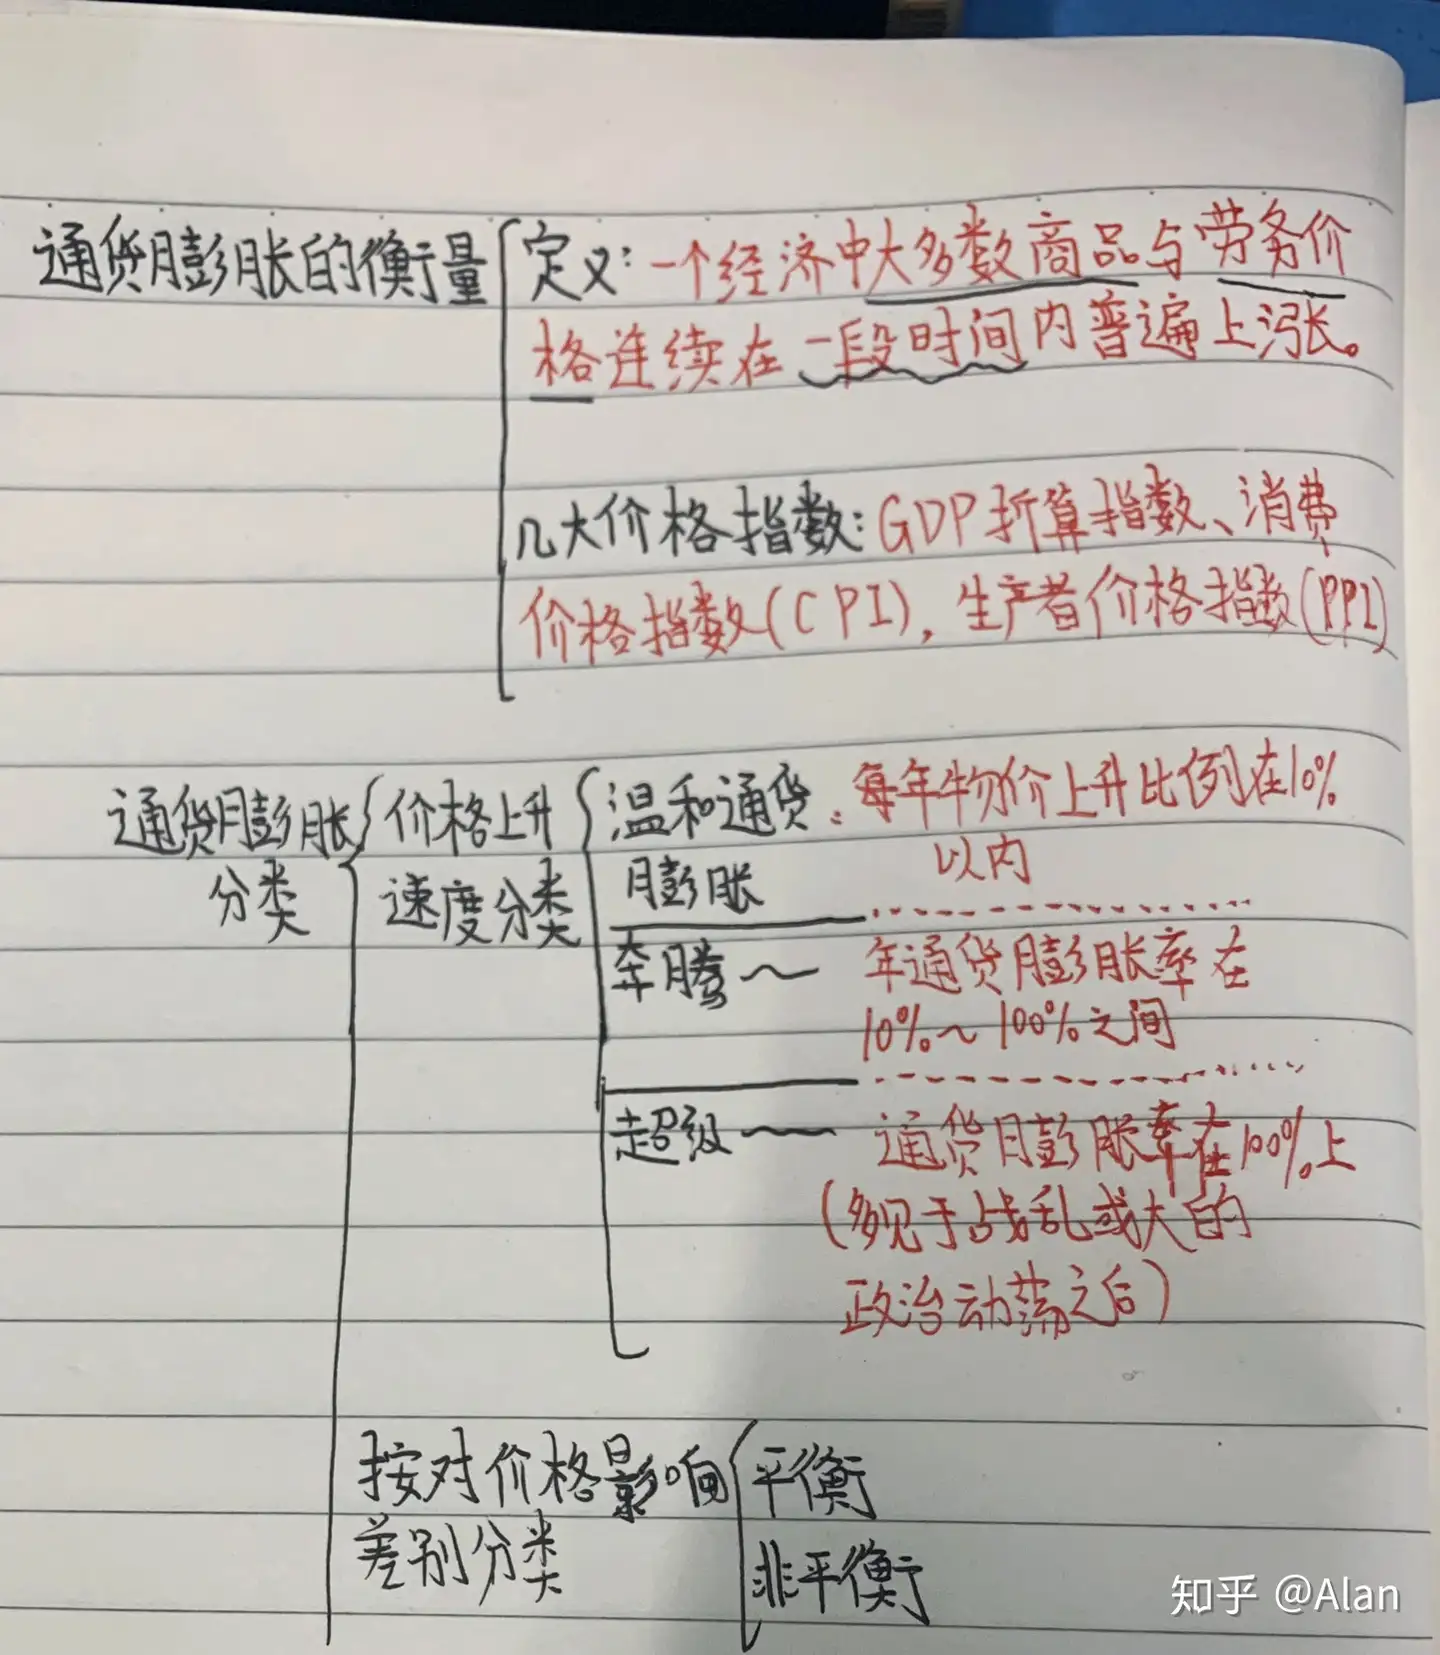 通货膨胀的衡量
定义：一个经济中大多数商品与劳务价
格连续在一段时间内普遍上涨。
几大价格指数：GDP折算指数、消费
价格指数(CPI)，生产者价格指数(PPI)
通货膨胀
分类
价格上升
速度分类
温和通货
膨胀
：每年物价上升比例在10%
以内
奔腾～
年通货膨胀率在
10%～100%之间
超级～
通货膨胀率在100%上
(多见于战乱或大的
政治动荡之后)
按对价格影响
差别分类
平衡
非平衡
知乎 @Alan